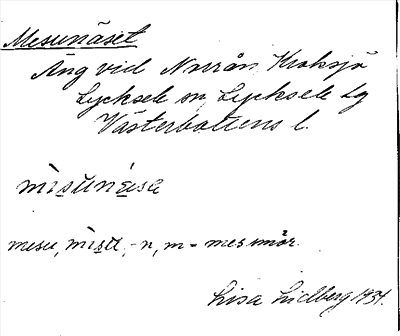 Mesunäset
Äng vid Norrån, Kroksjö
Lycksele sn, Lycksele lg
Västerbottens l.
misuneisa
mesu, misu, -n, m = mesmör.
Lisa Lidberg 1931.